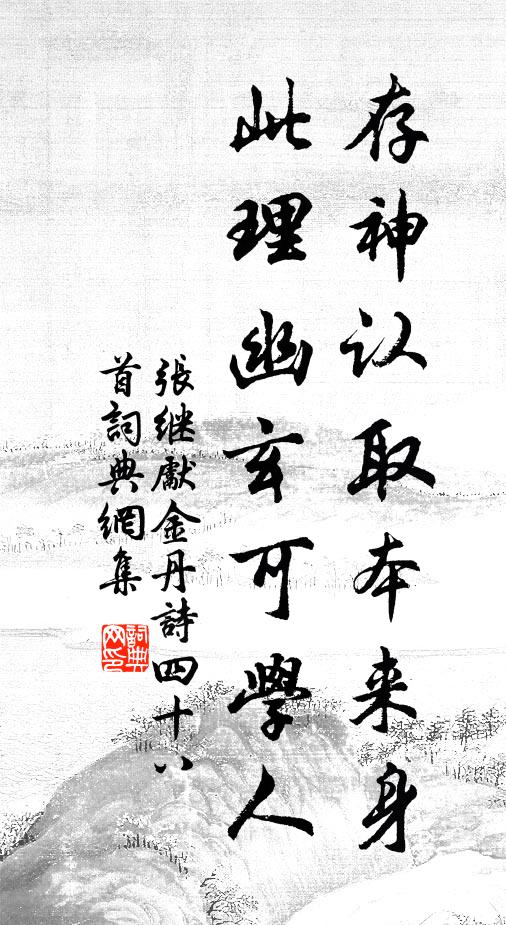 存神认取本来身
此理幽玄可學人
張继獻金丹詩四十八
首詞典網集
詞典
网印